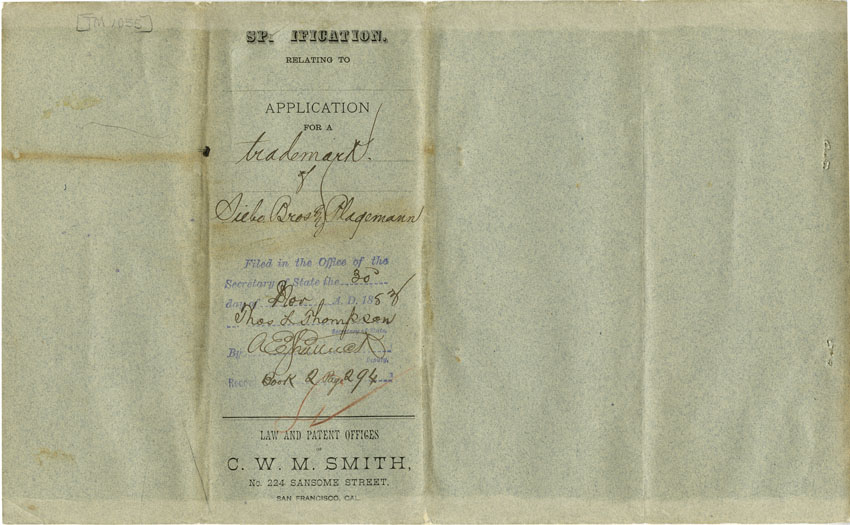 [TM 1055]
SP. IFICATION,
RELATING TO
APPLICATION
FOR A
trademark.
of
Siebe Bros & Plagemann
Filed in the Office of the
Secretary of State the 30
day of Nov A. D. 188
Thos L Thompson
Secretary of State
By
Deputy.
Book 2 Page 294
LAW AND PATENT OFFICES
OF
C. W. M. SMITH,
No. 224 SANSOME STREET,
SAN FRANCISCO, CAL.